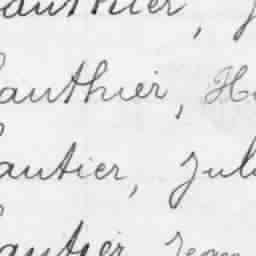 authier,
authier, H
autier, Jul
autier, Jean